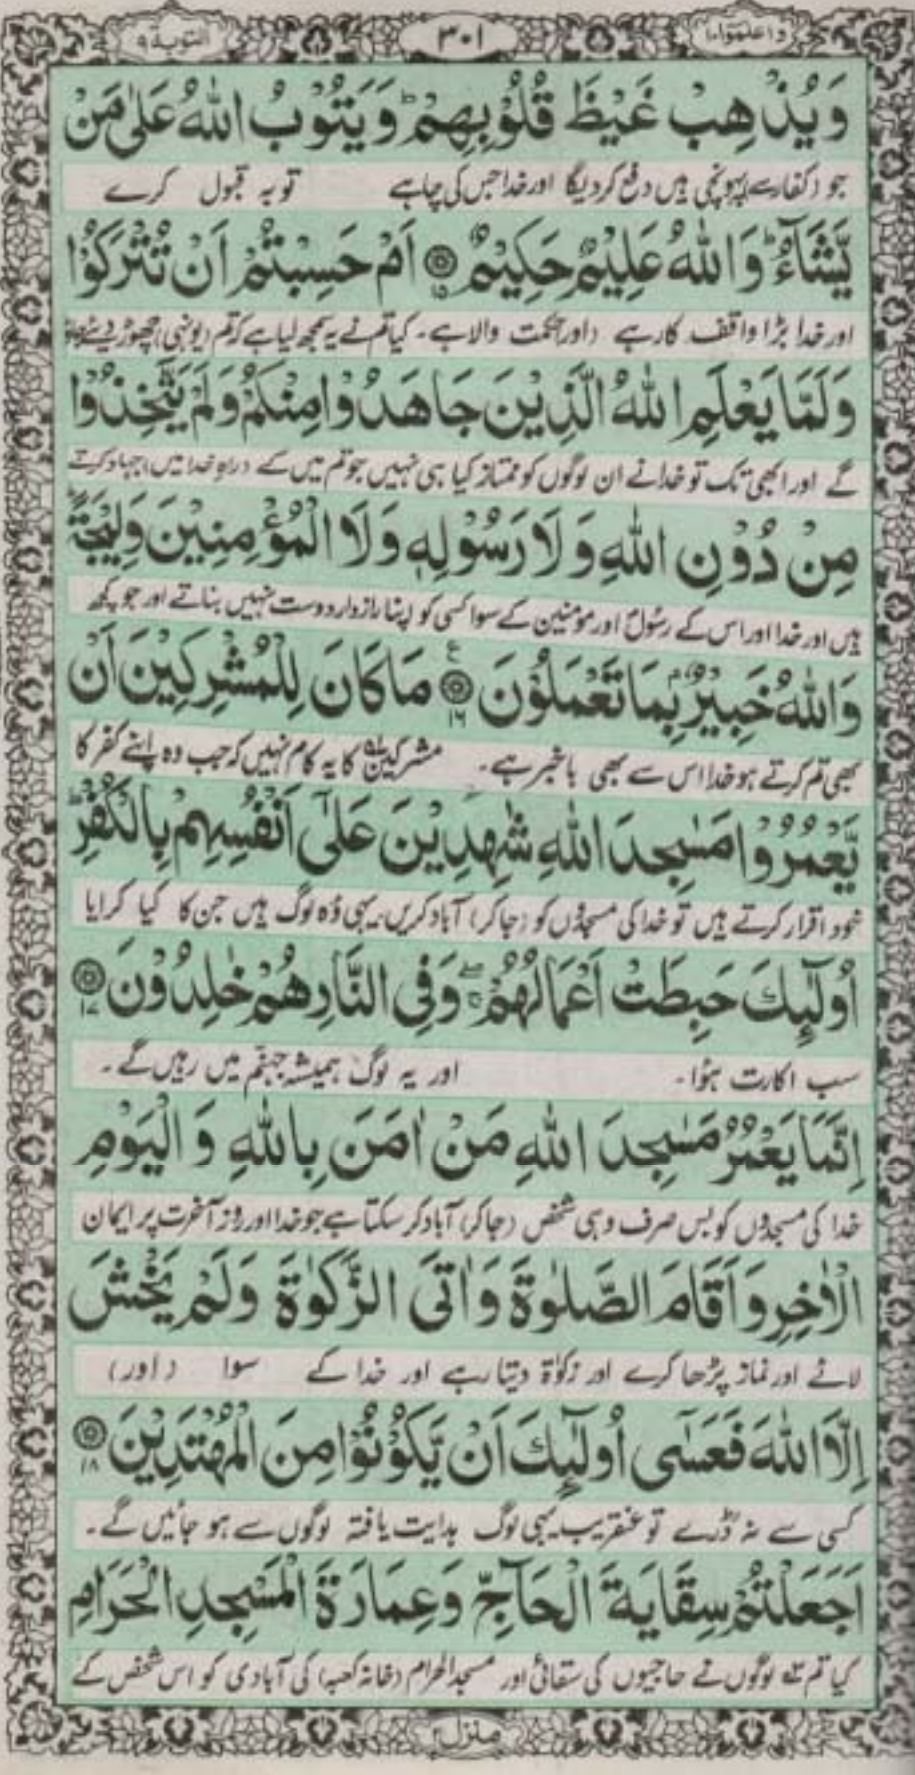 واعلموا۱۰
۳۰۱
التوبة۹
وَيُذْهِبْ غَيْظَ قُلُوْبِهِمْ ؕ وَيَتُوْبُ اللّٰهُ عَلٰى مَنْ
جو (کفار سے) پہونچی ہیں دفع کر دیگا اور خدا جس کی چاہے توبہ قبول کرے
يَّشَآءُ ؕ وَاللّٰهُ عَلِيْمٌ حَكِيْمٌ ۝۱۵ اَمْ حَسِبْتُمْ اَنْ تُتْرَكُوْا
اور خدا بڑا واقف کار ہے (اور) حکمت والا ہے۔ کیا تم نے یہ سمجھ لیا ہے کہ تم (یونہی) چھوڑ دیئے جاؤ
وَلَمَّا يَعْلَمِ اللّٰهُ الَّذِيْنَ جَاهَدُوْا مِنْكُمْ وَلَمْ يَتَّخِذُوْا
گے اور ابھی تک تو خدا نے ان لوگوں کو ممتاز کیا ہی نہیں جو تم میں کے (راہِ خدا میں) جہاد کرتے
مِنْ دُوْنِ اللّٰهِ وَلَا رَسُوْلِهٖ وَلَا الْمُؤْمِنِيْنَ وَلِيْجَةً ؕ
ہیں اور خدا اور اس کے رسولؐ اور مومنین کے سوا کسی کو اپنا راز دار دوست نہیں بناتے اور جو کچھ
وَاللّٰهُ خَبِيْرٌۢ بِمَا تَعْمَلُوْنَ ۝۱۶ ع مَا كَانَ لِلْمُشْرِكِيْنَ اَنْ
بھی تم کرتے ہو خدا اس سے بھی باخبر ہے۔ مشرکین کا یہ کام نہیں کہ جب وہ اپنے کفر کا
يَّعْمُرُوْا مَسٰجِدَ اللّٰهِ شٰهِدِيْنَ عَلٰٓى اَنْفُسِهِمْ بِالْكُفْرِ ؕ
خود اقرار کرتے ہیں تو خدا کی مسجدوں کو (جا کر) آباد کریں یہی وُہ لوگ ہیں جن کا کیا کرایا
اُولٰٓئِكَ حَبِطَتْ اَعْمَالُهُمْ ۖۚ وَفِى النَّارِ هُمْ خٰلِدُوْنَ ۝۱۷
سب اکارت ہؤا۔ اور یہ لوگ ہمیشہ جہنّم میں رہیں گے۔
اِنَّمَا يَعْمُرُ مَسٰجِدَ اللّٰهِ مَنْ اٰمَنَ بِاللّٰهِ وَالْيَوْمِ
خدا کی مسجدوں کو بس صرف وہی شخص (جا کر) آباد کر سکتا ہے جو خدا اور روز آخرت پر ایمان
الْاٰخِرِ وَاَقَامَ الصَّلٰوةَ وَاٰتَى الزَّكٰوةَ وَلَمْ يَخْشَ
لائے اور نماز پڑھا کرے اور زکوٰۃ دیتا رہے اور خدا کے سوا (اور)
اِلَّا اللّٰهَ فَعَسٰٓى اُولٰٓئِكَ اَنْ يَّكُوْنُوْا مِنَ الْمُهْتَدِيْنَ ۝۱۸
کسی سے نہ ڈرے تو عنقریب یہی لوگ ہدایت یافتہ لوگوں سے ہو جائیں گے۔
اَجَعَلْتُمْ سِقَايَةَ الْحَآجِّ وَعِمَارَةَ الْمَسْجِدِ الْحَرَامِ
کیا تم لوگوں نے حاجیوں کی سقائی اور مسجد الحرام (خانہ کعبہ) کی آبادی کو اس شخص کے
منزل